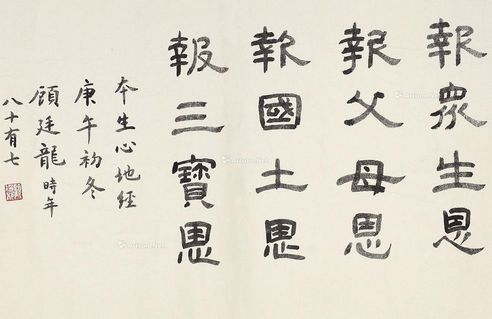 報眾生恩
報父母恩
報國土恩
報三寶恩
本生心地經
庚午初冬
顧廷龍時年
八十有七